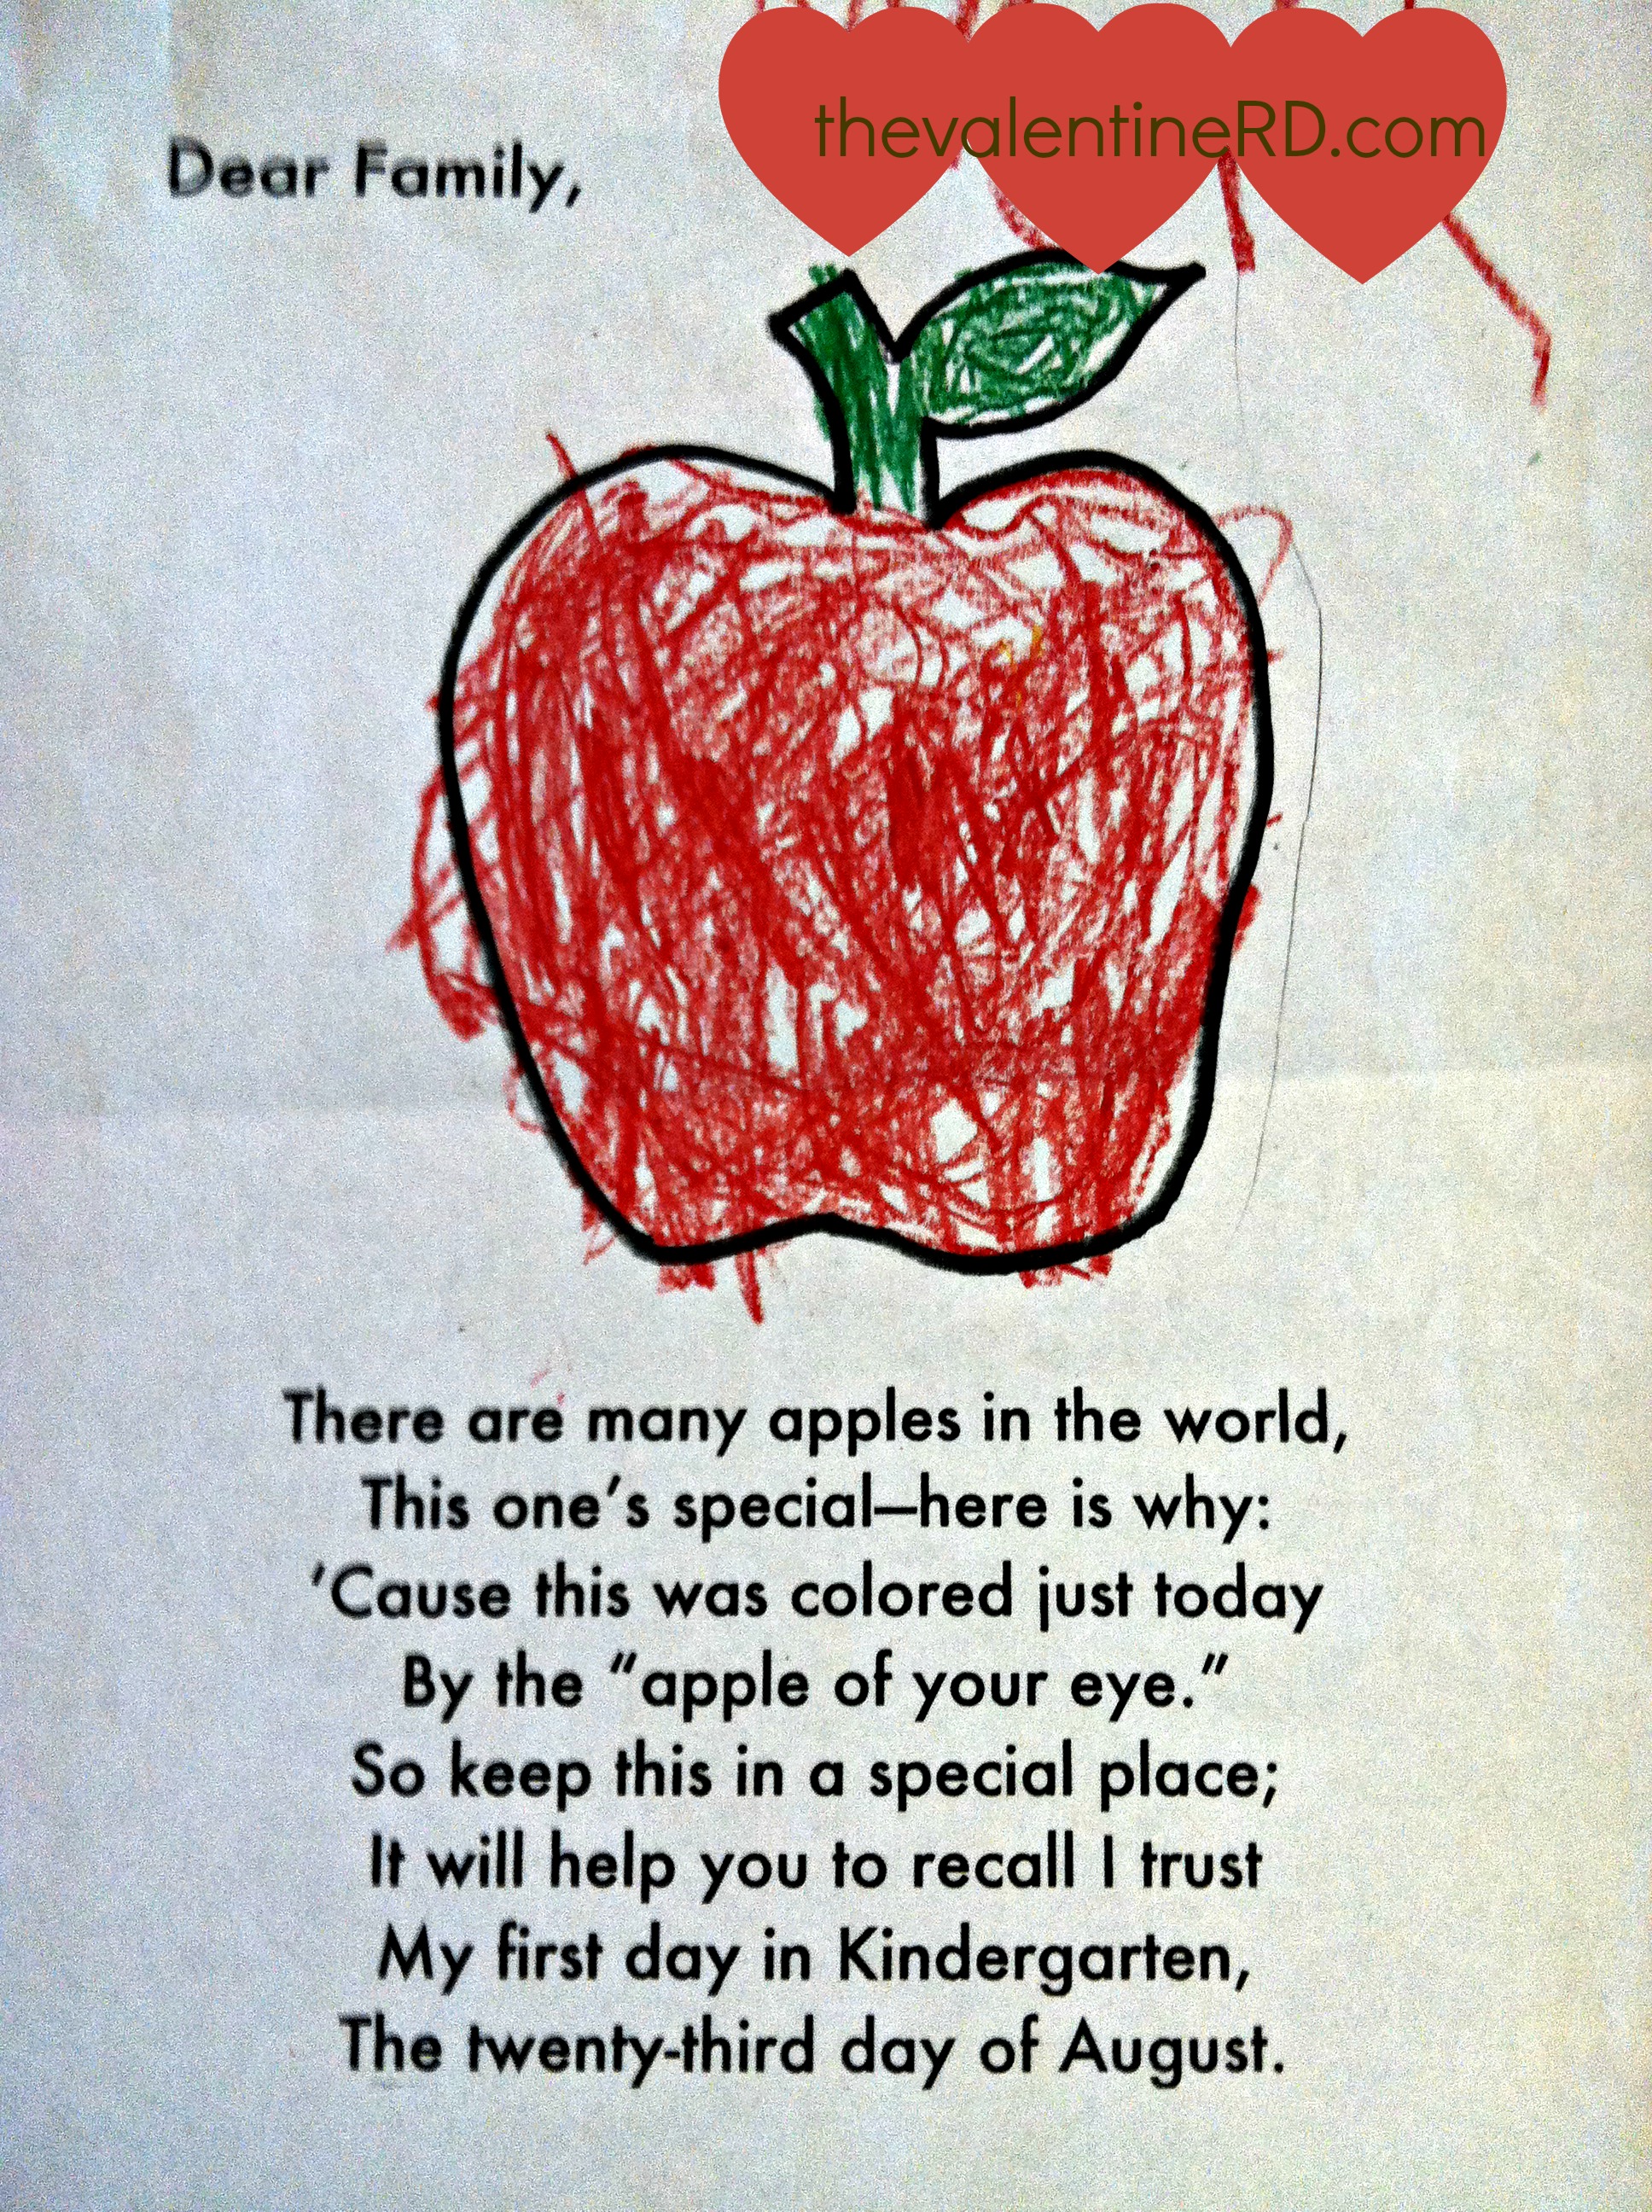 thevalentineRD.com
Dear Family,
There are many apples in the world,
This one's special—here is why:
'Cause this was colored just today
By the "apple of your eye."
So keep this in a special place;
It will help you to recall I trust
My first day in Kindergarten,
The twenty-third day of August.